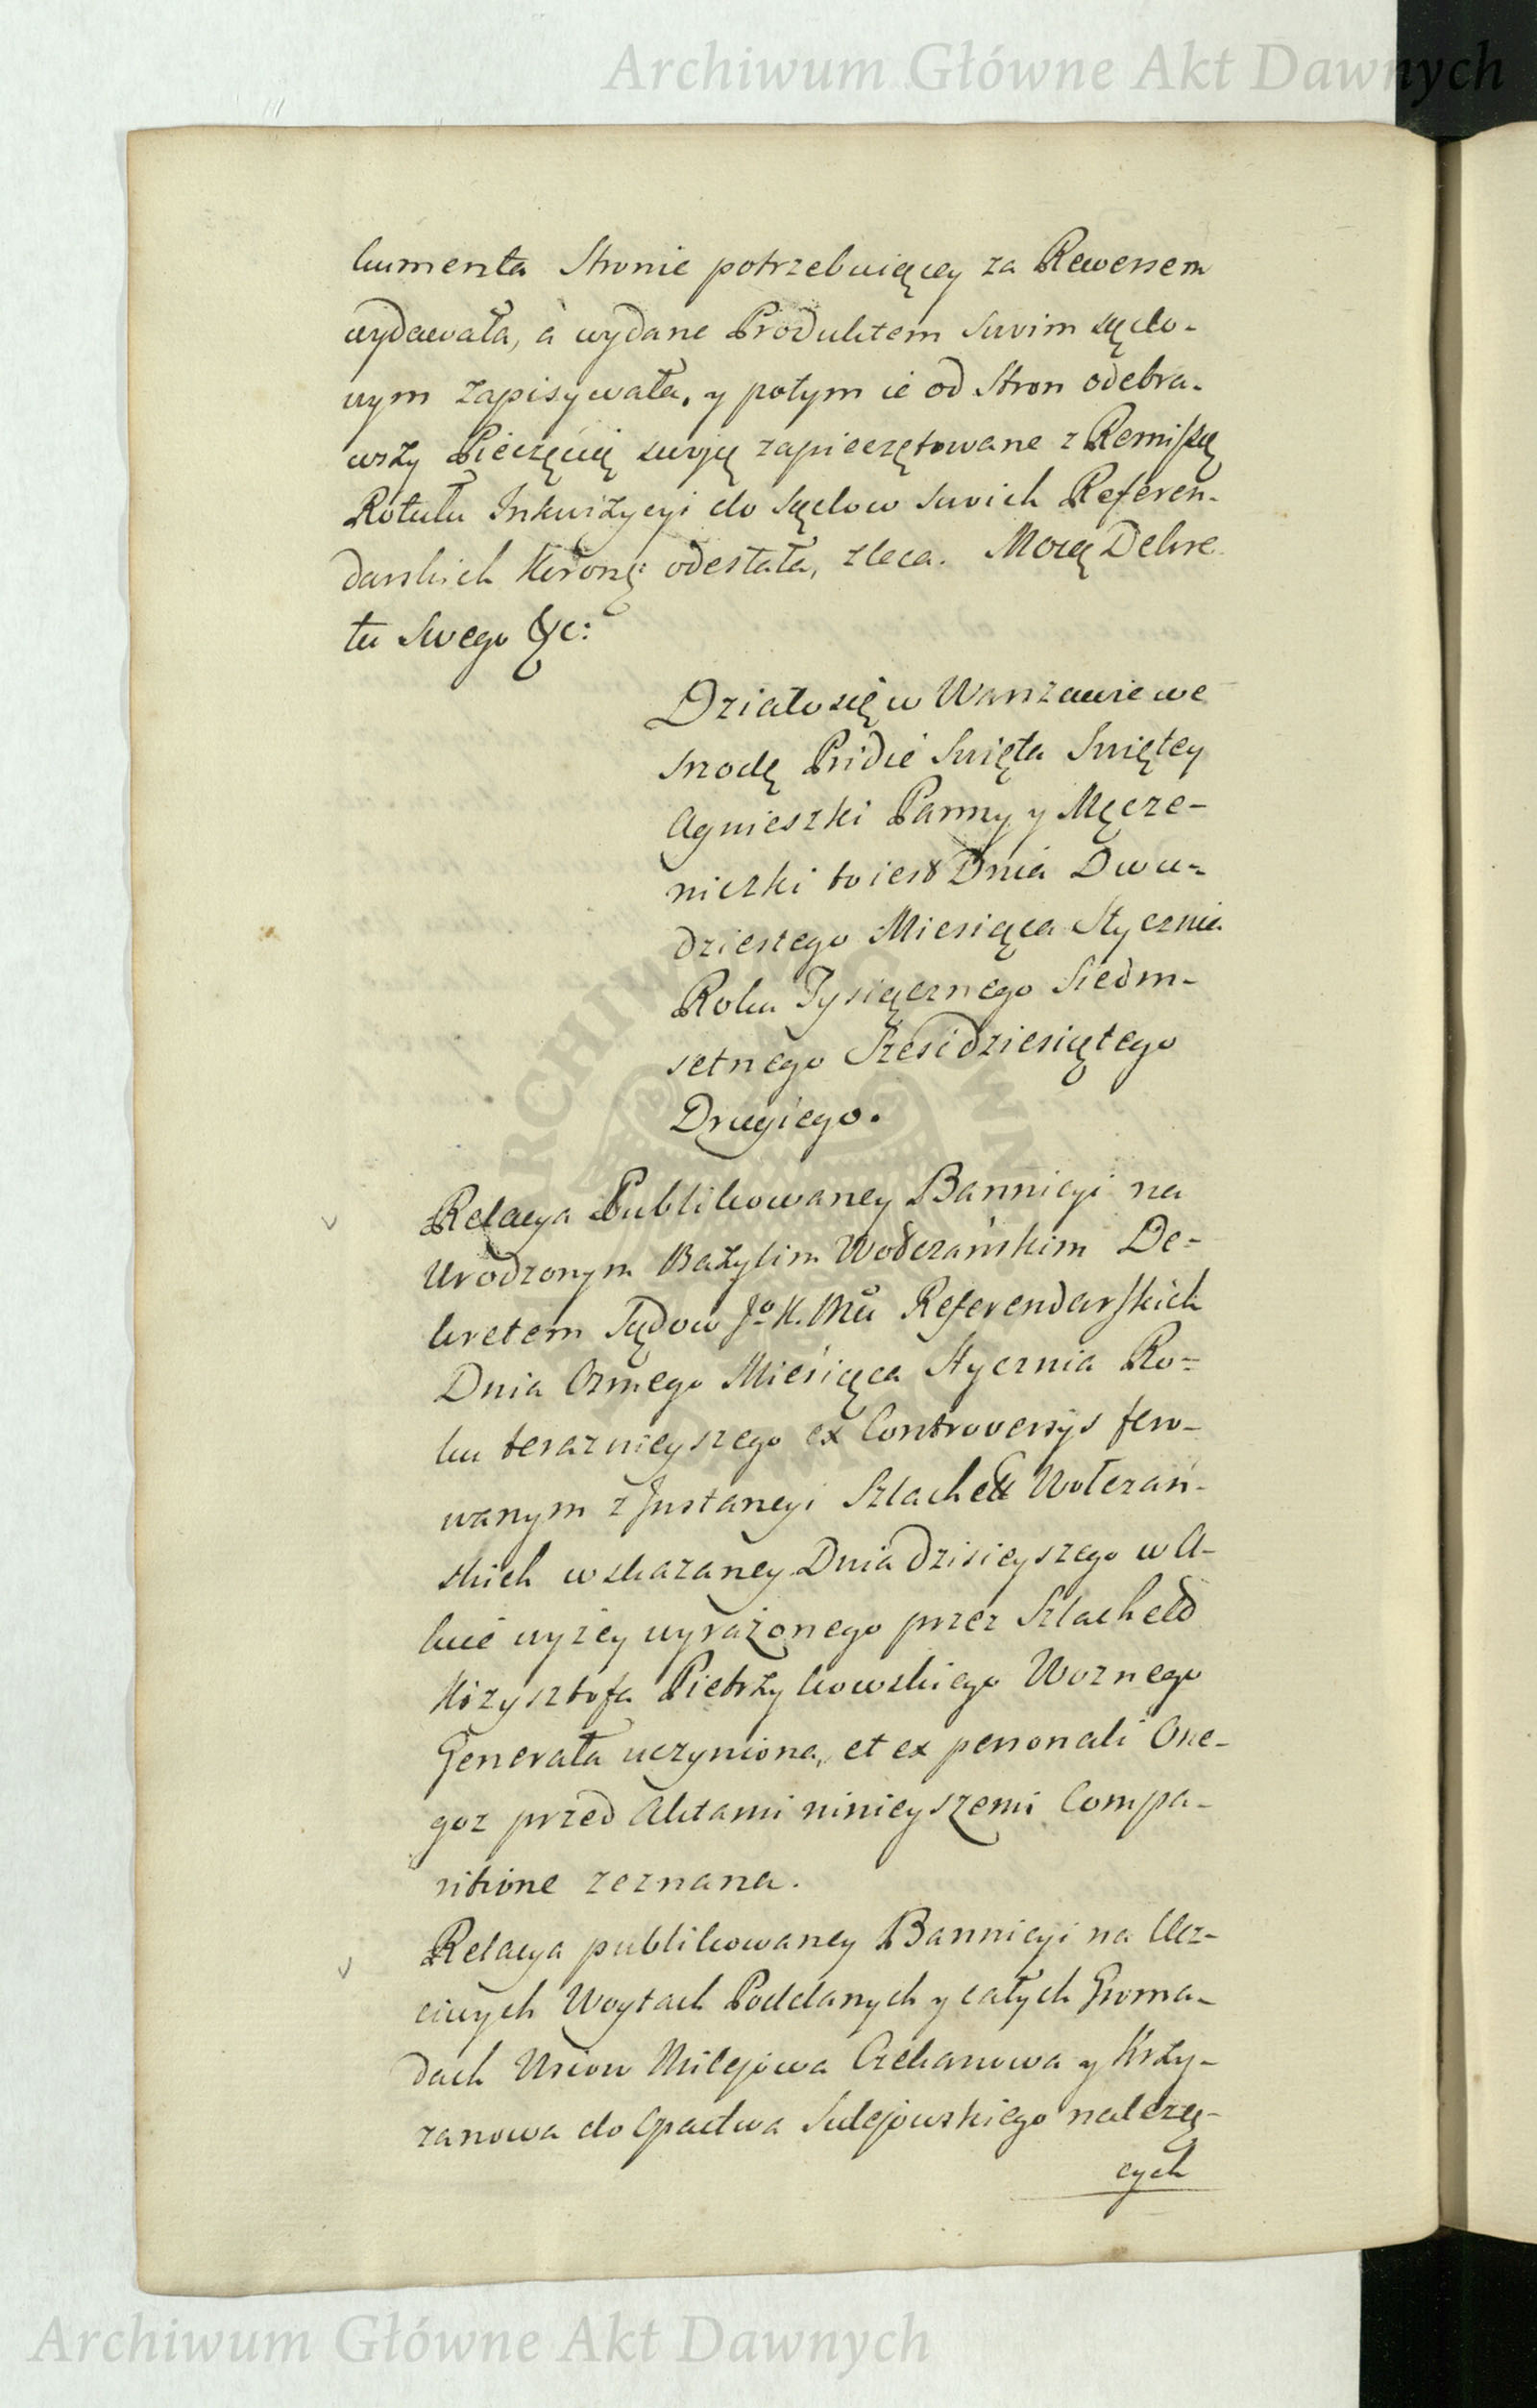 Archiwum Główne Akt Dawnych
kumenta Stronie potrzebuiącey za Rewersem
wydawała, a wydane Produktem swoim sądo-
wym zapisywała, y potym ie od Stron odebra-
wszy Pieczęcią swoją zapieczętowane z Remissą
Rotułu Inkwizycyi do sądow swoich Referen-
darskich Koronɀ: odesłała, zleca. Mocą Dekre
tu Swego &c:
Działo się w Warszawie we
srodę Pridie Swięta Swiętey
Agnieszki Panny y Męcze-
niczki to iest Dnia Dwu-
dziestego Miesiąca Stycznia
Roku Tysiącznego Siedm-
setnego Szescdziesiątego
Drugiego.
Relacya Publikowaney Bannicyi na
Urodzonym Bazylim Wołczańskim De-
kretem Sądow Jº K. Mci Referendarskich
Dnia Osmego Miesiąca Stycznia Ro-
ku teraznieyszego ex Controversijs fero-
wanym z Instancyi Szlachet Wołczań-
skich wskazaney Dnia dzisieyszego w A-
kcie wyzey wyrażonego przez Szlachetº
Krzysztofa Pietrzykowskiego Woznego
Generała uczyniona, et ex personali One-
goz przed Aktami ninieyszemi Compa-
ritione zeznana.
Relacya publikowaney Bannicyi na Ucz-
ciwych Woytach Poddanych y całych Groma-
dach Wsiow Milejowa Cekanowa y Krzy-
zanowa do Opactwa Sulejowskiego nalezą-
cych
Archiwum Główne Akt Dawnych